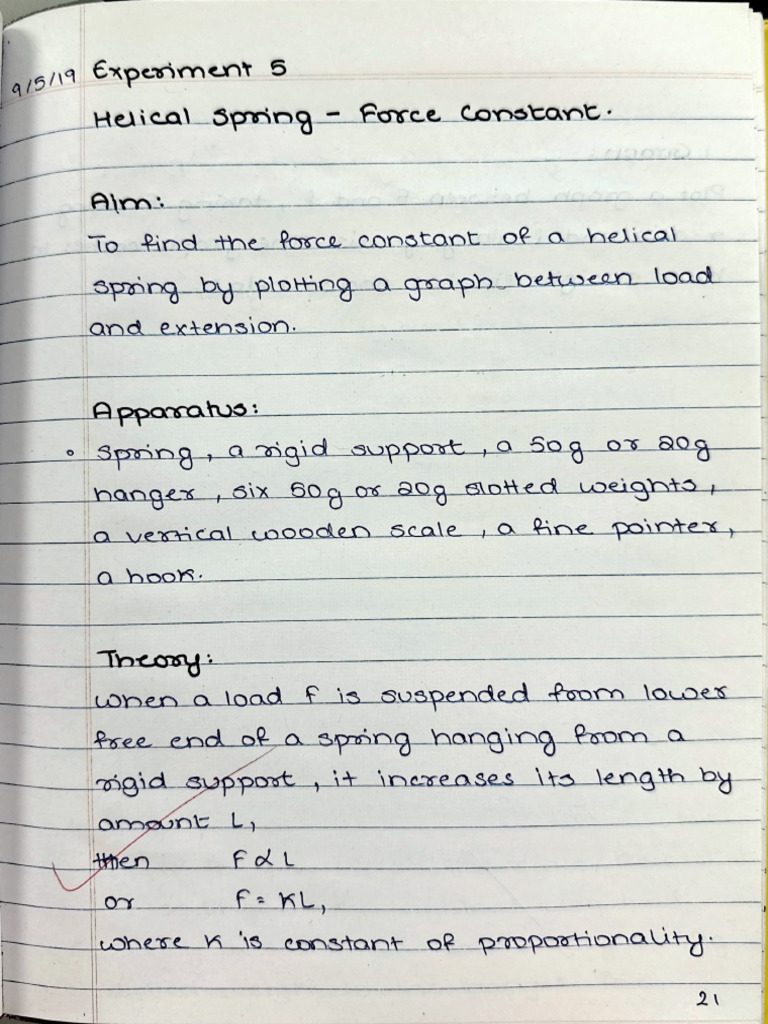 9/5/19 Experiment 5
Helical Spring - Force Constant.
Aim:
To find the force constant of a helical
spring by plotting a graph between load
and extension.
Apparatus:
Spring, a rigid support, a 50g or 20g
hanger, six 50g or 20g slotted weights,
a vertical wooden scale, a fine pointer,
a hook.
Theory:
When a load F is suspended from lower
free end of a spring hanging from a
rigid support, it increases its length by
amount L,
then F ∝ L
or F = KL,
where K is constant of proportionality.
21